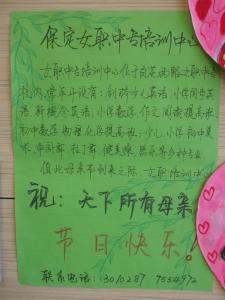 保定女职中专培训中心
女职中专培训中心位于
校内,常年开设有:剑桥少儿英语 小学同步英
语 新概念英语,小学数学 作文 阅读提高班,
初中数学 物理化学提高班,少儿 小学初中美
术,中国舞 拉丁舞 健美操 器乐等多种专业。
值此母亲节到来之际,女职培训中心
祝:天下所有母亲
节日快乐!
联系电话:3010287 7554972